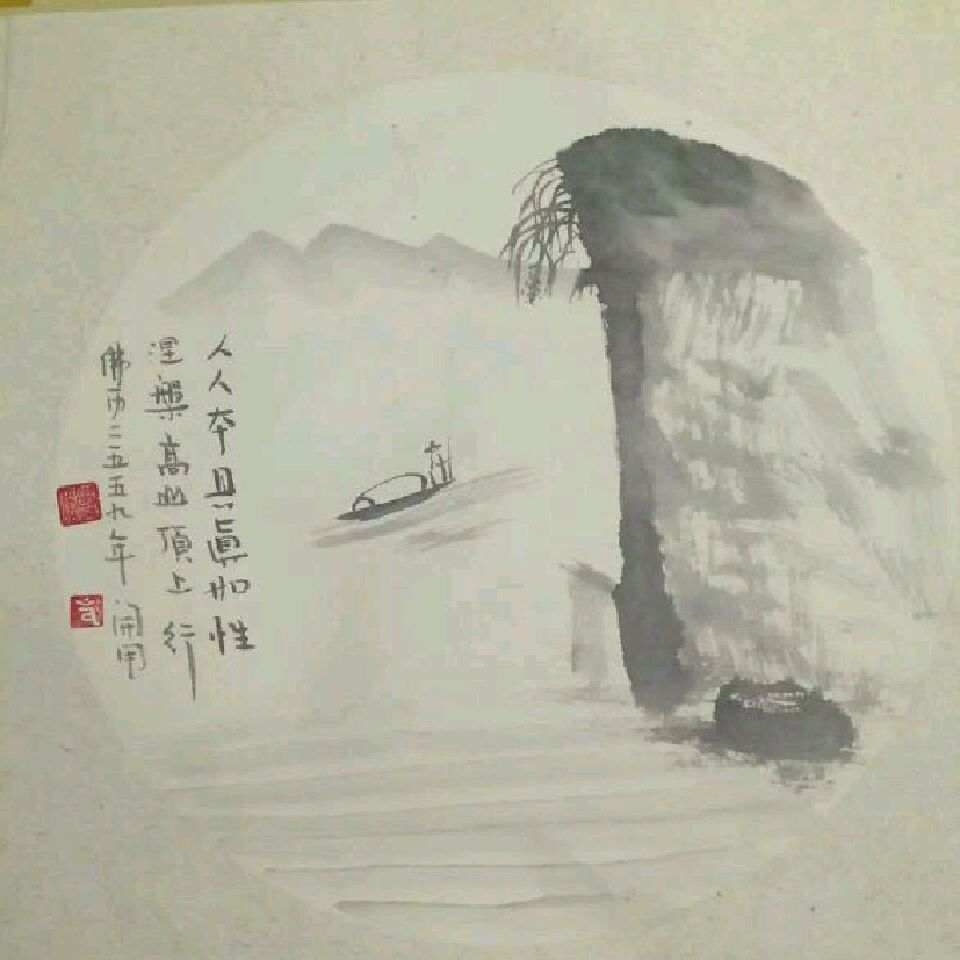 人人本具真如性
涅槃高山頂上行
佛历二五五九年 開用